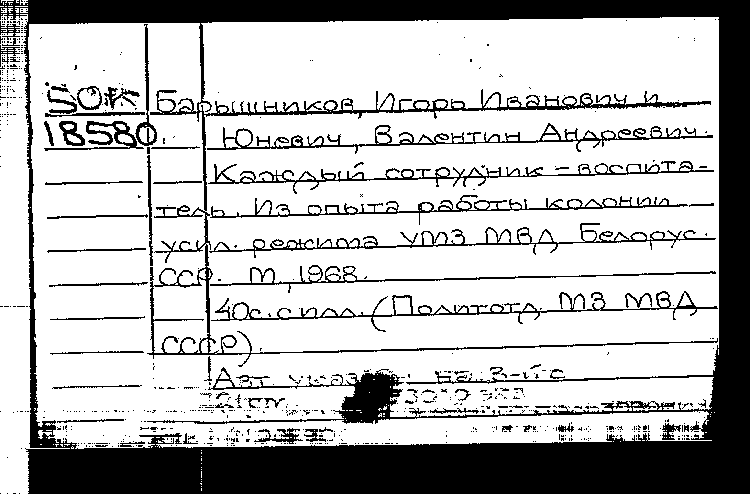 50К Барышников, Игорь Иванович и
18580. Юневич, Валентин Андреевич.
Каждый сотрудник - воспита-
тель. Из опыта работы колонии
усил. режима УМЗ МВД Белорус.
ССР. М, 1968.
40с. с илл. (Политотд. МЗ МВД
СССР).
Авт указ на 3-й с
21 cm